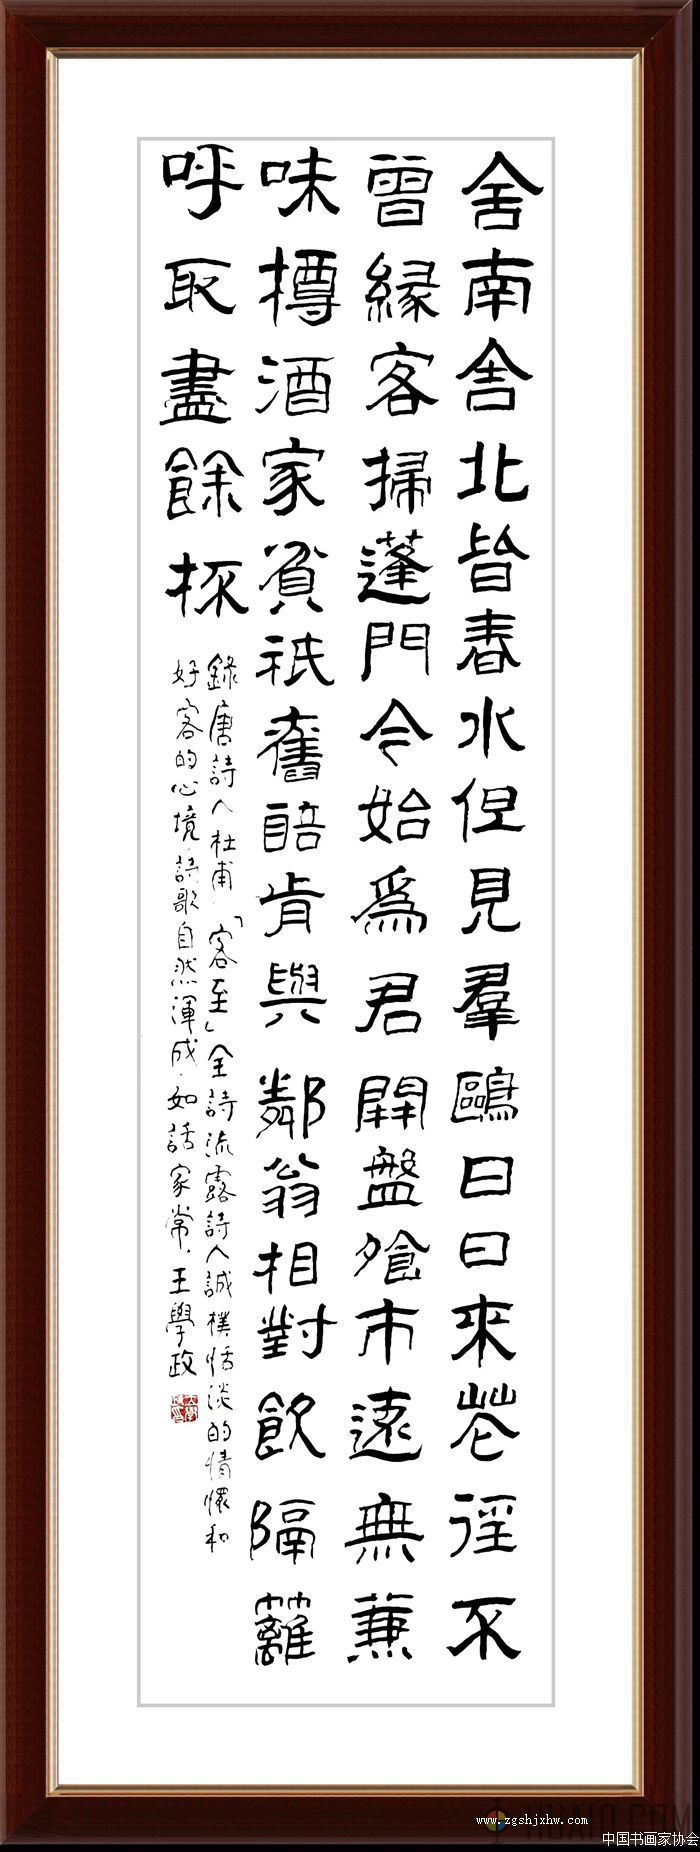 舍南舍北皆春水但見羣鷗日日來花徑不
曾緣客掃蓬門今始爲君開盤飧市遠無兼
味樽酒家貧祇舊醅肯與鄰翁相對飲隔籬
呼取盡餘杯
錄唐詩人杜甫「客至」全詩流露詩人誠樸恬淡的情懷和
好客的心境，詩歌自然渾成，如話家常。王學政
www.zgshjxhw.com
中国书画家协会